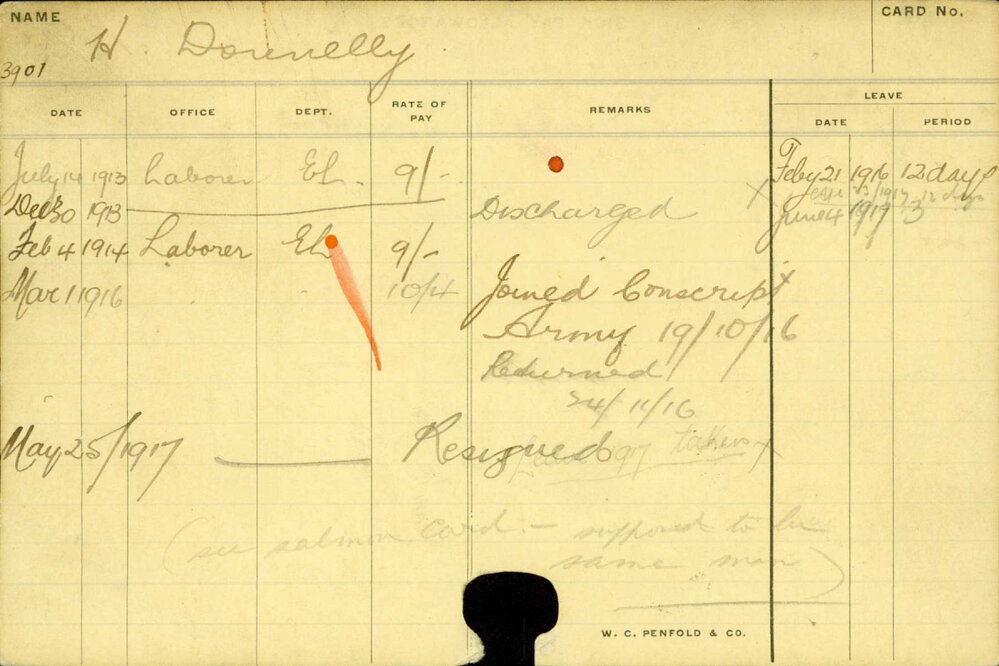 NAME
H. Donnelly
CARD No.
3901
DATE OFFICE DEPT. RATE OF PAY REMARKS LEAVE
DATE PERIOD
July 14 1913 Laborer El. 9/-
Feby 21 1916 12 days
23/1917 12 days
Dec 30 1913 Discharged
June 4 1917 3
Feb 4 1914 Laborer El 9/-
Mar 1 1916 10/4 Joined Conscript
Army 19/10/16
Returned
24/11/16
May 25/1917 Resigned
taken
(see salmon card. - supposed to be
same man)
W. C. PENFOLD & CO.